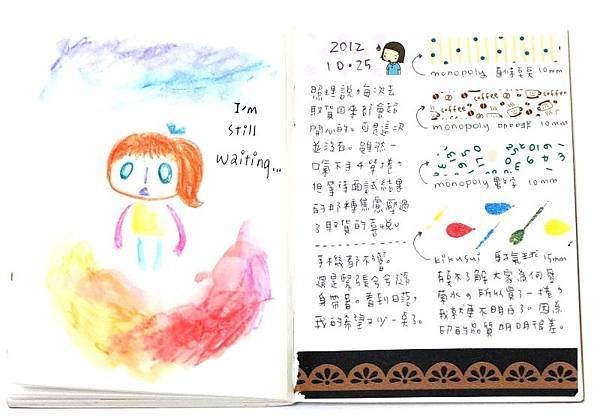 I'm
still
waiting...
2012
10.25
照理說,每次去
取貨回來都會很
開心的。可是這次
並沒有。雖然一
口氣入手4捲,
但等待面試結果
的那種焦慮感過
了取貨的喜悅。
手機都不響。
還是緊張兮兮隨
身帶著。看到日落,
我的希望又少一點了。
monopoly 10mm
coffee
monopoly 10mm
monopoly 數字 10mm
kikusui 射氣球 15mm
我不了解大家為何愛
菊水,所以買了一捲,
我就更不明白了。因為
印的品質明明很差。